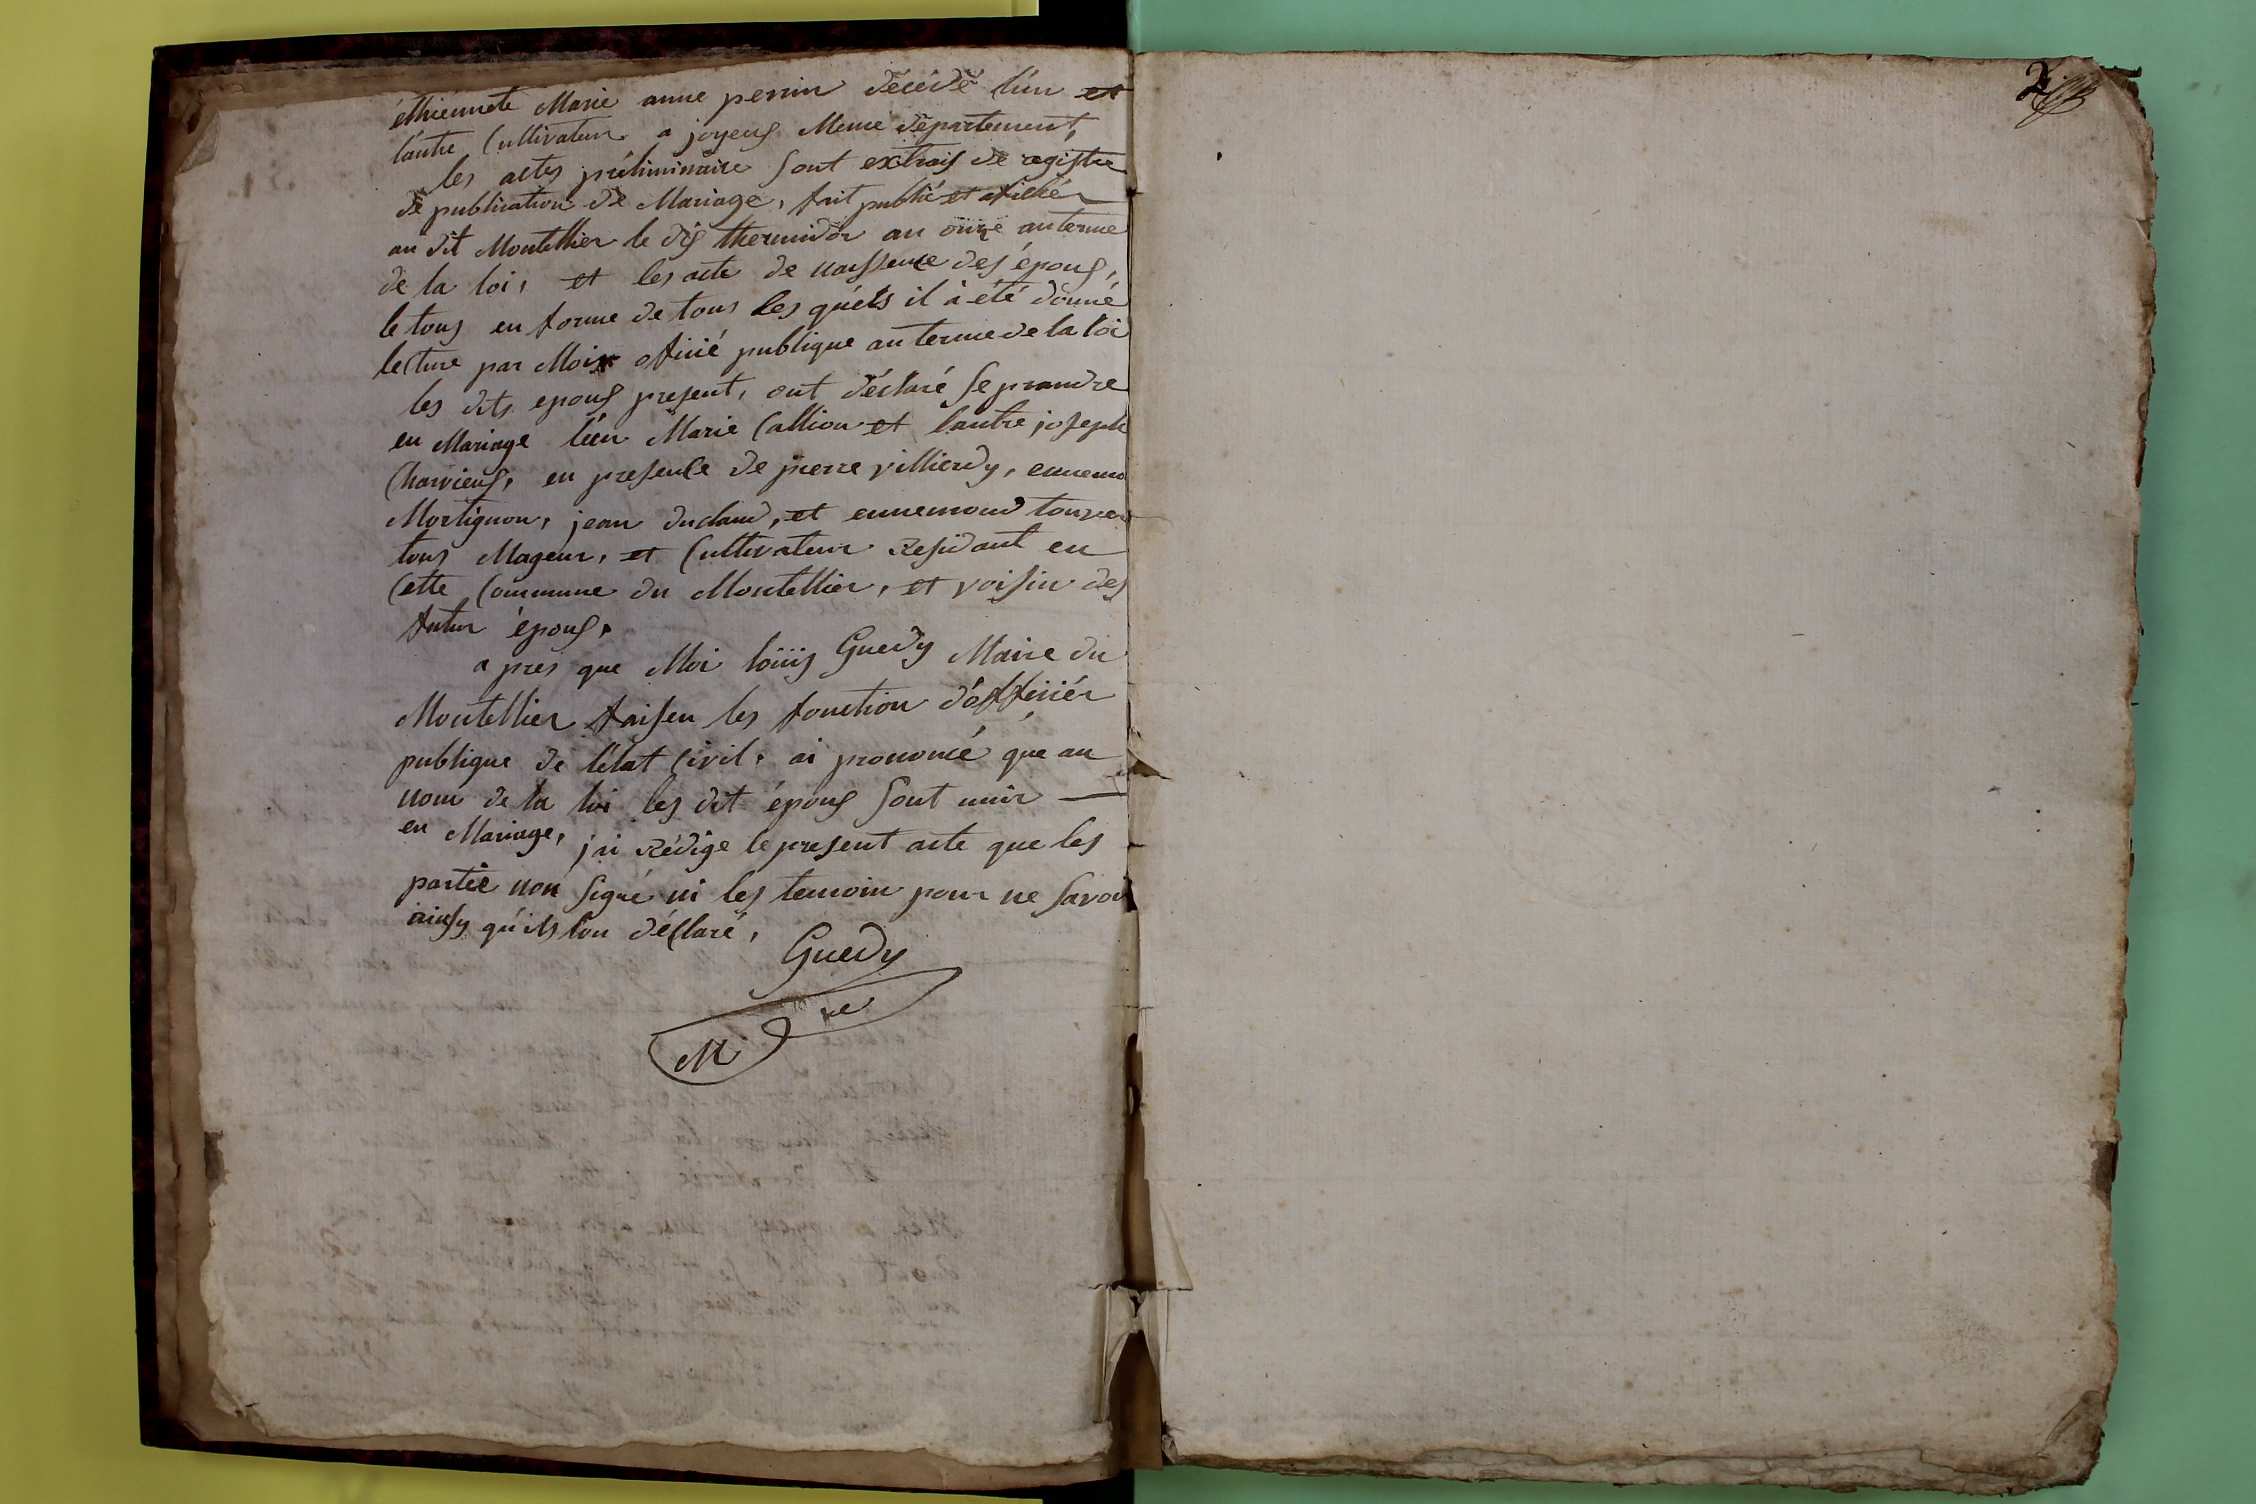 2
éthiennete Marie anne perrin décédé l'un et
l'autre Cultivateur a joyeuf Meme département,
les actes préliminaire Sont extrais de registre
de publication de Mariage, fait publié et afiché
au dit Montellier le dix thermidor an onze au terme
de la loi, et les acte de naissence des épous,
le tous en forme de tous les quéls il à été donné
lecture par Moi officié publique au terme de la loi
les dits epous present, ont déclaré Se prandre
en Mariage l'un Marie Callion et l'autre joseph
Charvieuf, en presence de pierre villierdy, ennemo
Mortignon, jean duclaud, et ennemond
tous Mageur, et Cultivateur residant en
Cette Commune du Montellier, et voisin des
futur épous,
a pres que Moi loüis Guedy Maire du
Montellier faisen les fonction d'officiér
publique de l'état Civil, ai prononcé que au
nom de la loi les dit épous Sont unir
en Mariage, j'ai rédige le present acte que les
partie non Signé ni les temoin pour ne Savoir
ainsy qu'ils lon déClaré,
Guedy
M re